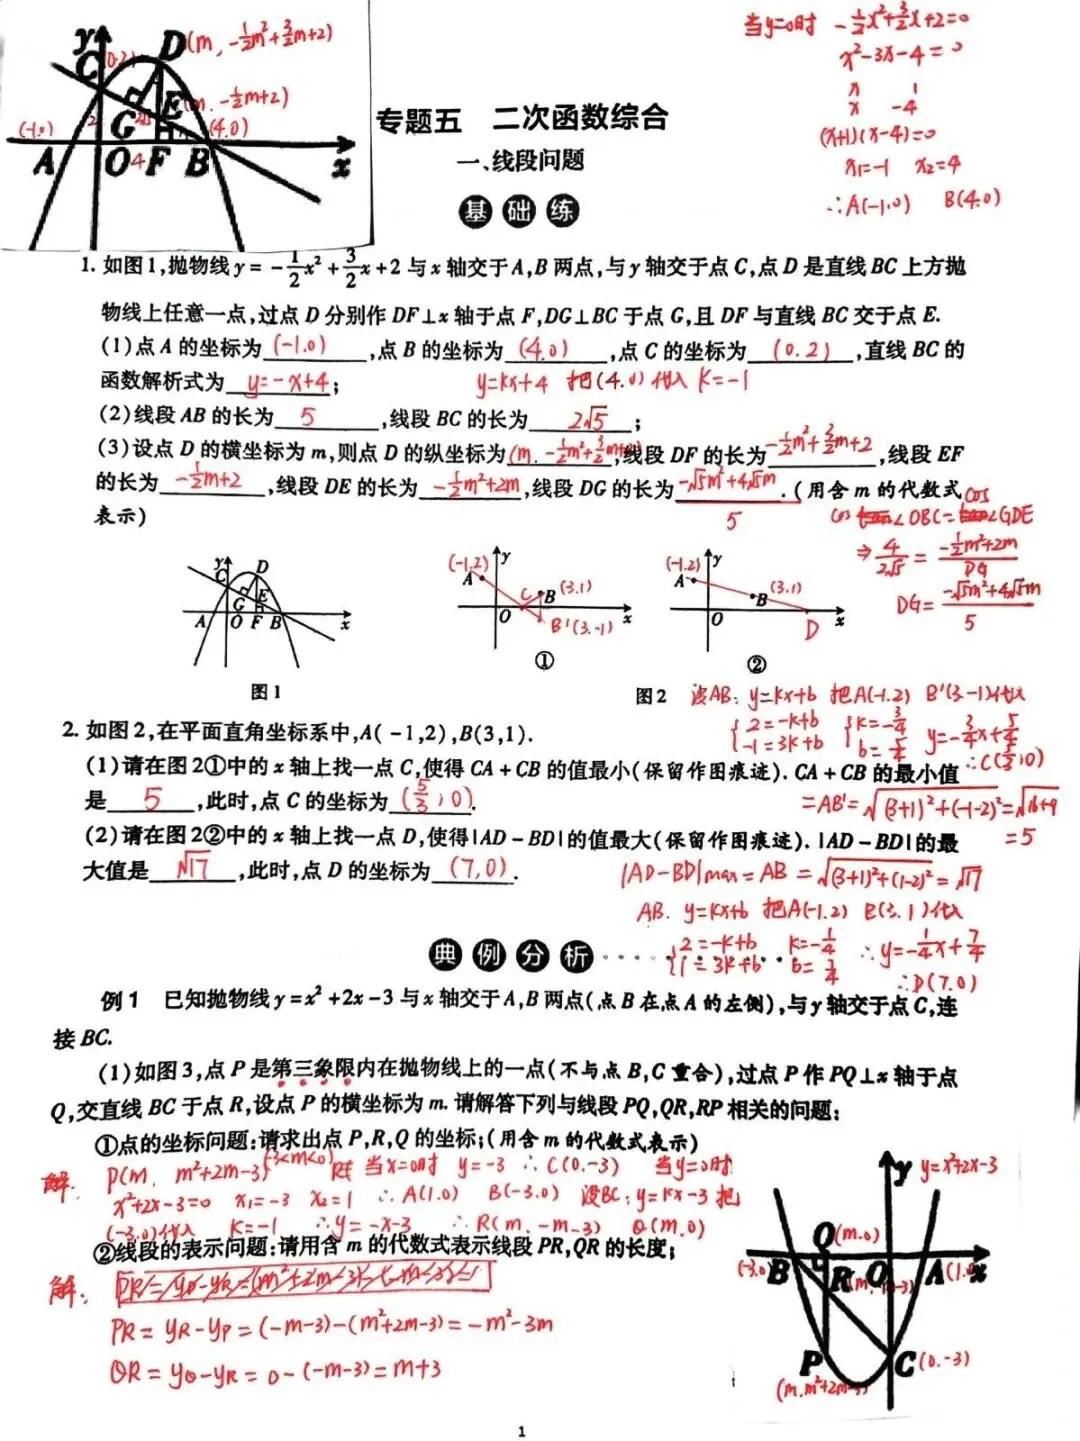 y
C
(0.2)
D
(m, -½m²+3/2m+2)
G
E
(m, -½m+2)
(-1.0)
2
(4.0)
A
O
4
F
B
x
当y=0时 -½x²+3/2x+2=0
x²-3x-4=0
x 1
x -4
(x+1)(x-4)=0
x₁=-1 x₂=4
∴A(-1.0) B(4.0)
专题五 二次函数综合
一、线段问题
基础练
1. 如图1,抛物线 y = -1/2x² + 3/2x + 2 与 x 轴交于 A,B 两点,与 y 轴交于点 C,点 D 是直线 BC 上方抛
物线上任意一点,过点 D 分别作 DF⊥x 轴于点 F,DG⊥BC 于点 G,且 DF 与直线 BC 交于点 E.
(1)点 A 的坐标为 (-1.0) ,点 B 的坐标为 (4.0) ,点 C 的坐标为 (0.2) ,直线 BC 的
函数解析式为 y=-x+4 ; y=kx+4 把(4.0)代入 k=-1
(2)线段 AB 的长为 5 ,线段 BC 的长为 2√5 ;
(3)设点 D 的横坐标为 m,则点 D 的纵坐标为 (m.-½m²+3/2m+2) ,线段 DF 的长为 -½m²+3/2m+2 ,线段 EF
的长为 -½m+2 ,线段 DE 的长为 -½m²+2m ,线段 DG 的长为 (-√5m²+4√5m)/5 .(用含 m 的代数式
表示)
cos
∠OBC= ∠GDE
⇒ 4/2√5 = (-½m²+2m)/DG
DG= (-√5m²+4√5m)/5
y
C
D
G
E
A
O
F
B
x
图1
(-1.2)
A
y
C
B
(3.1)
O
B'(3.-1)
x
①
(-1.2)
A
y
(3.1)
B
O
D
x
②
图2
设AB: y=kx+b 把A(-1.2) B'(3.-1)代入
{2=-k+b {k=-3/4 y=-3/4x+5/4
-1=3k+b b=5/4 ∴C(5/3,0)
2. 如图2,在平面直角坐标系中,A(-1,2),B(3,1).
(1)请在图2①中的 x 轴上找一点 C,使得 CA+CB 的值最小(保留作图痕迹). CA+CB 的最小值
是 5 ,此时,点 C 的坐标为 (5/3,0) .
=AB'=√(3+1)²+(-1-2)²=√16+9
=5
(2)请在图2②中的 x 轴上找一点 D,使得|AD-BD|的值最大(保留作图痕迹). |AD-BD|的最
大值是 √17 ,此时,点 D 的坐标为 (7,0) .
|AD-BD|max=AB=√(3+1)²+(1-2)²=√17
AB. y=kx+b 把A(-1.2) B(3.1)代入
{2=-k+b k=-1/4 ∴y=-1/4x+7/4
1=3k+b b=7/4 ∴D(7.0)
典例分析
例1 已知抛物线 y=x²+2x-3 与 x 轴交于 A,B 两点(点 B 在点 A 的左侧),与 y 轴交于点 C,连
接 BC.
(1)如图3,点 P 是第三象限内在抛物线上的一点(不与点 B,C 重合),过点 P 作 PQ⊥x 轴于点
Q,交直线 BC 于点 R,设点 P 的横坐标为 m. 请解答下列与线段 PQ,QR,RP 相关的问题:
①点的坐标问题:请求出点 P,R,Q 的坐标;(用含 m 的代数式表示)
解. P(m, m²+2m-3)(-3<m<0) 当x=0时 y=-3 ∴C(0.-3) 当y=0时
x²+2x-3=0 x₁=-3 x₂=1 ∴A(1.0) B(-3.0) 设BC:y=kx-3 把
(-3.0)代入 k=-1 ∴y=-x-3 ∴R(m,-m-3) Q(m.0)
②线段的表示问题:请用含 m 的代数式表示线段 PR,QR 的长度;
解:
PR=yR-yP=(-m-3)-(m²+2m-3)=-m²-3m
QR=yQ-yR=0-(-m-3)=m+3
y
y=x²+2x-3
Q
(m.0)
(-3.0)
B
R
(m,-m-3)
O
A
(1.0)
x
P
C
(0.-3)
(m,m²+2m-3)
1